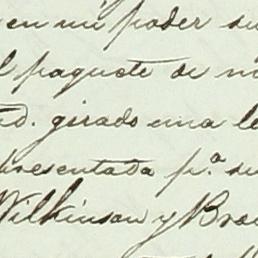 en mi poder su
paquete de m
Ud. girado una le
presentada p.ª su
Wilkinson y Bro